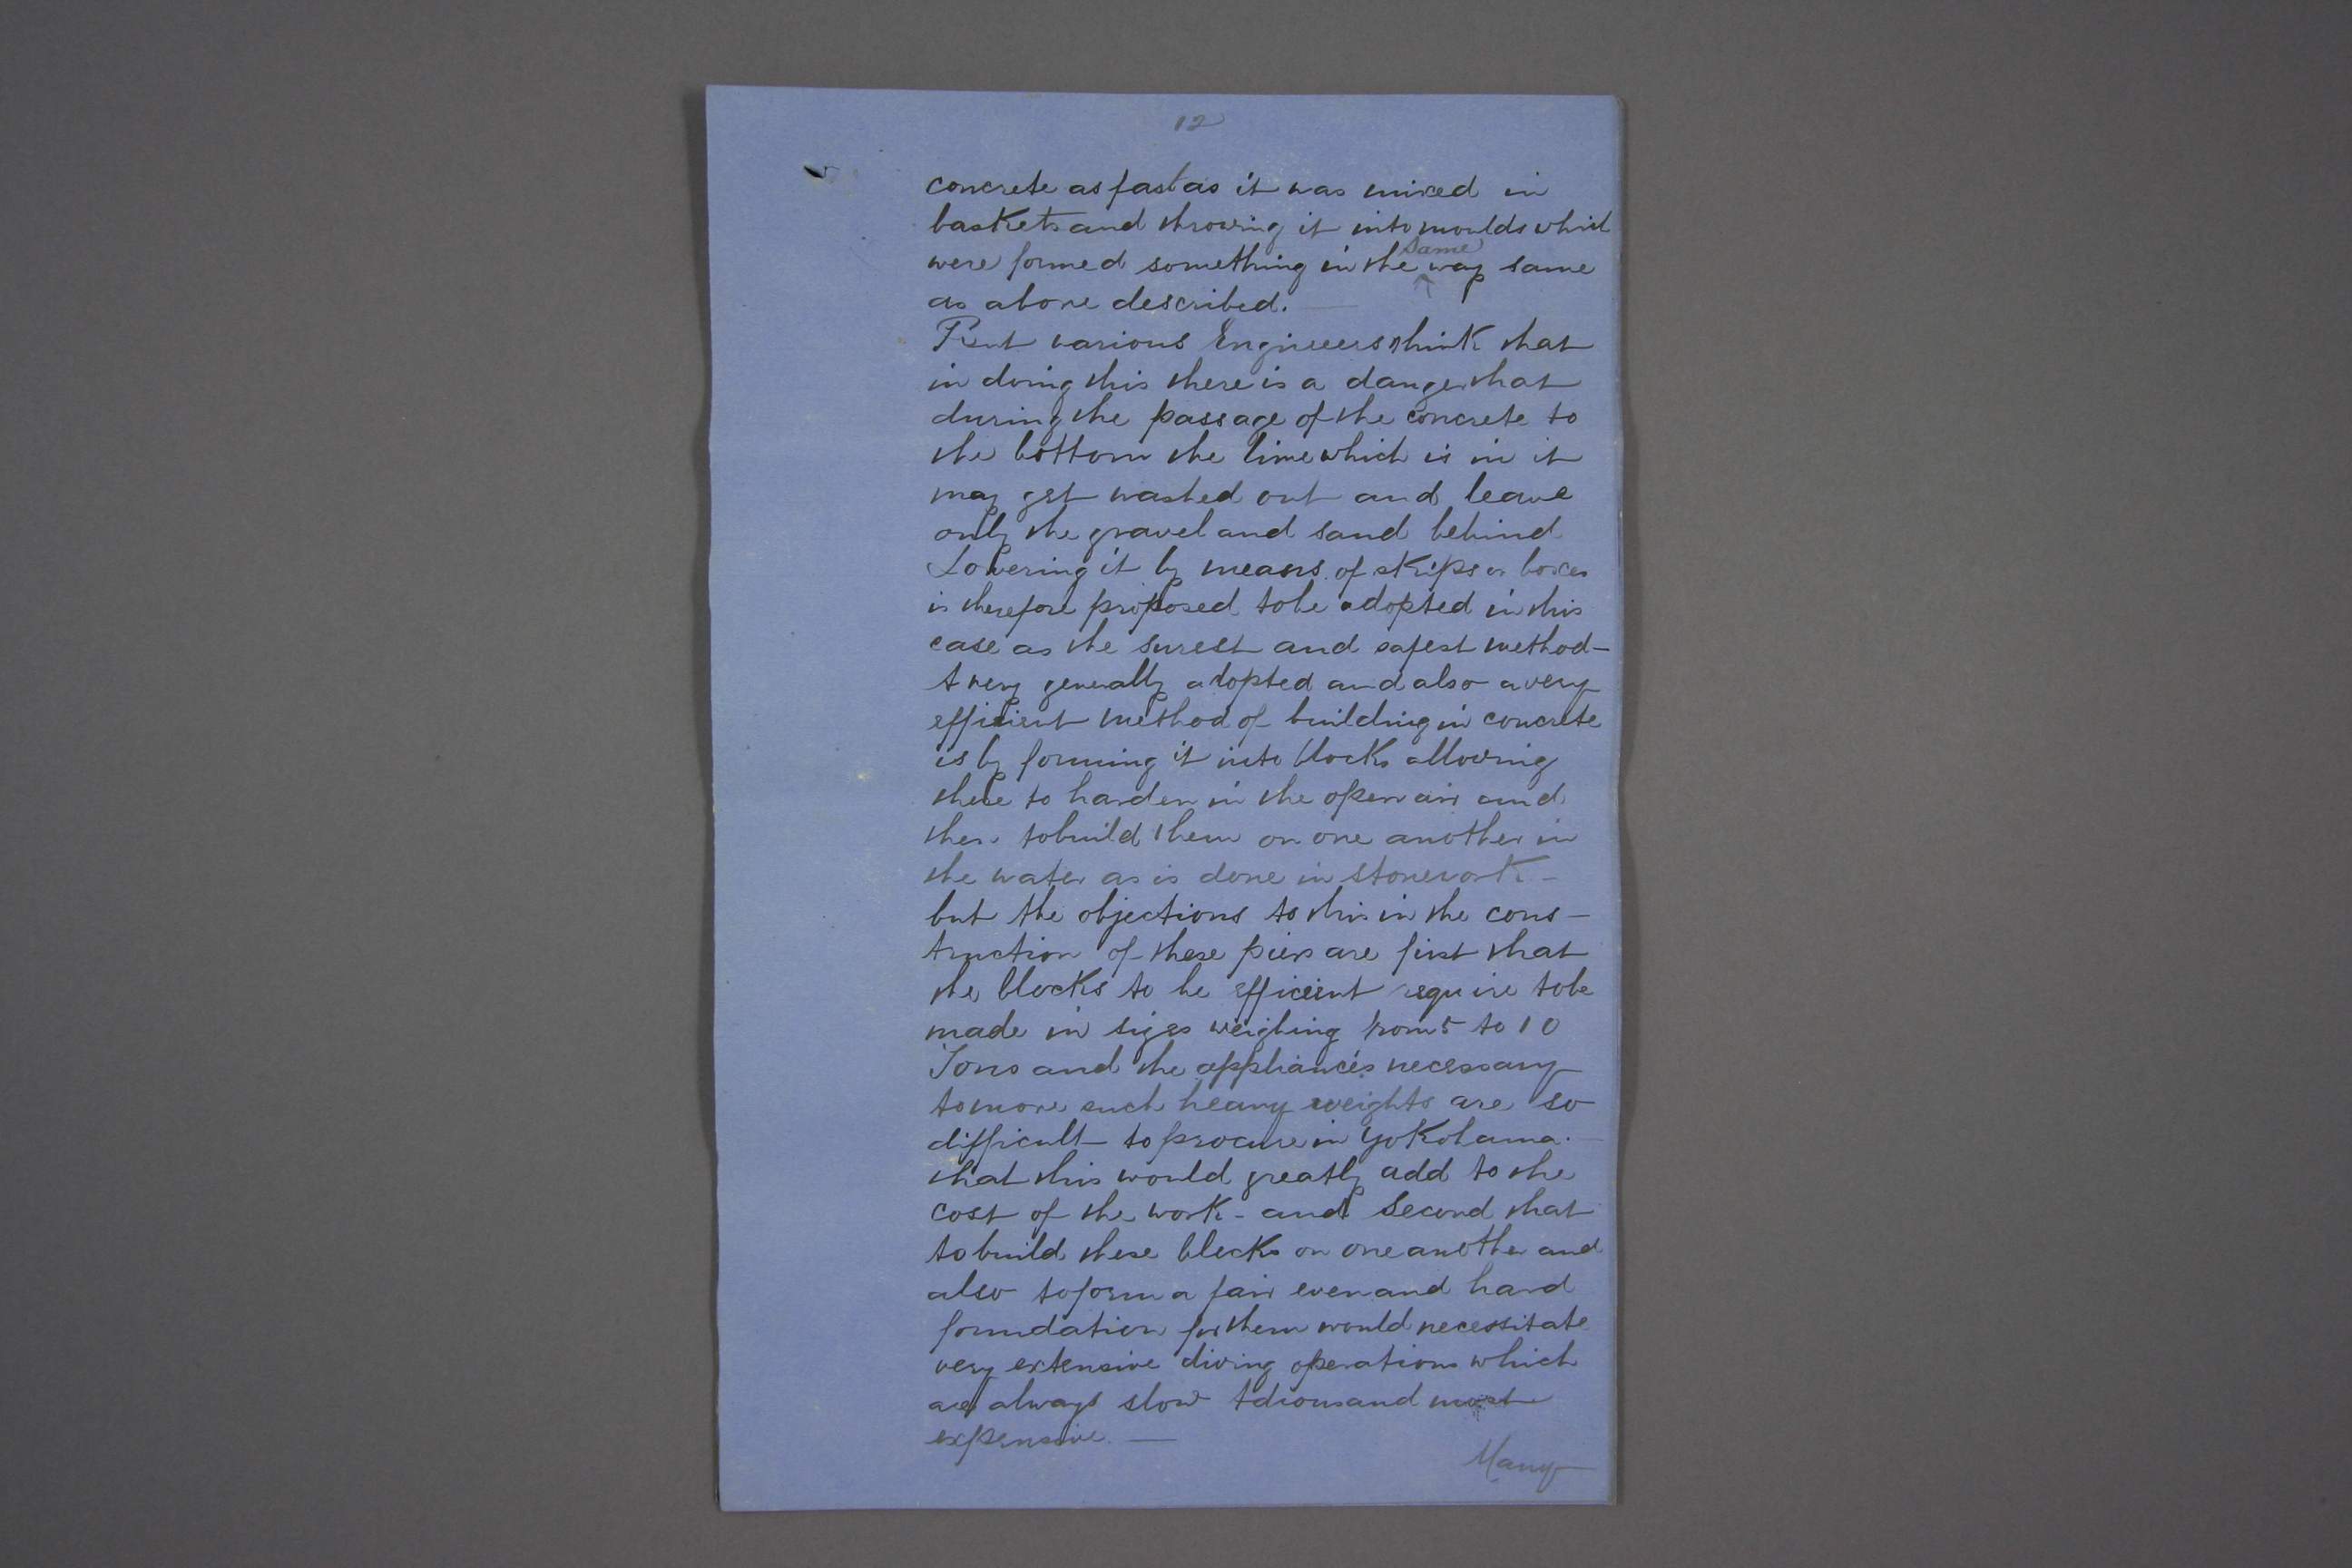 12
concrete as fast as it was mixed in
baskets and throwing it into moulds which
were formed something in the same way same
as above described. —
But various Engineers think that
in doing this there is a danger that
during the passage of the concrete to
the bottom the lime which is in it
may get washed out and leave
only the gravel and sand behind
Lowering it by means of skips or boxes
is therefore proposed to be adopted in this
case as the surest and safest method —
A very generally adopted and also a very
efficient method of building in concrete
is by forming it into blocks allowing
these to harden in the open air and
then to build them on one another in
the water as is done in stonework —
but the objections to this in the cons-
truction of these piers are first that
the blocks to be efficient require to be
made in sizes weighing from 5 to 10
Tons and the appliances necessary
to move such heavy weights are so
difficult to procure in Yokohama. —
that this would greatly add to the
cost of the work - and second that
to build these blocks on one another and
also to form a fair even and hard
foundation for them would necessitate
very extensive diving operations which
are always slow tdious and most
expensive. —
Many